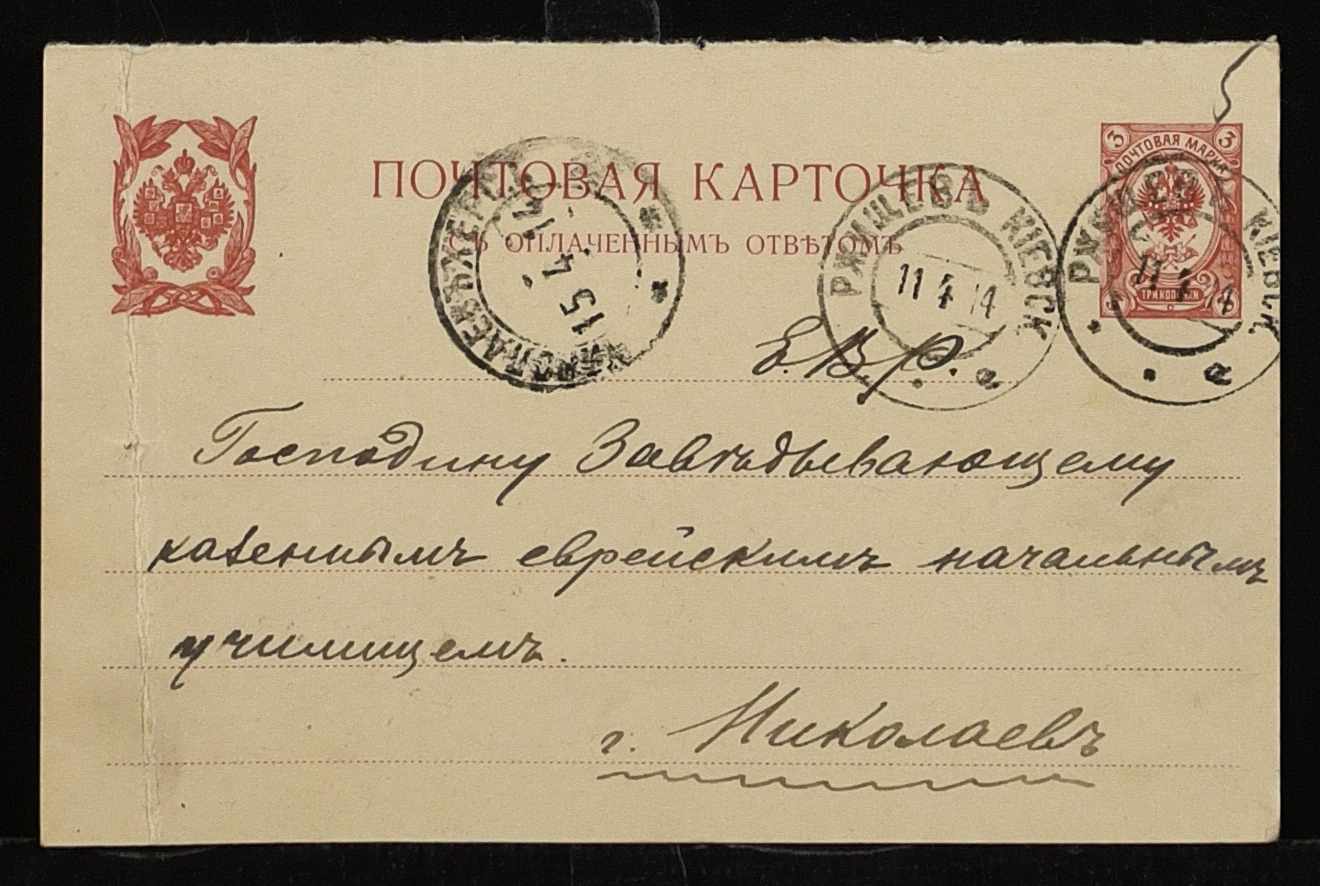 ПОЧТОВАЯ КАРТОЧКА
СЪ ОПЛАЧЕННЫМЪ ОТВѢТОМЪ
3 3
ПОЧТОВАЯ МАРКА
ТРИ КОПѢЙКИ
НИКОЛАЕВЪ ХЕРС
15 4 14
РЖИЩЕВЪ КІЕВСК
11 4 14
а
РЖИЩЕВЪ КІЕВСК
11 4 14
а
Е. В. Р.
Господину Завѣдывающему
казеннымъ еврейскимъ начальнымъ
училищемъ.
г. Николаевъ